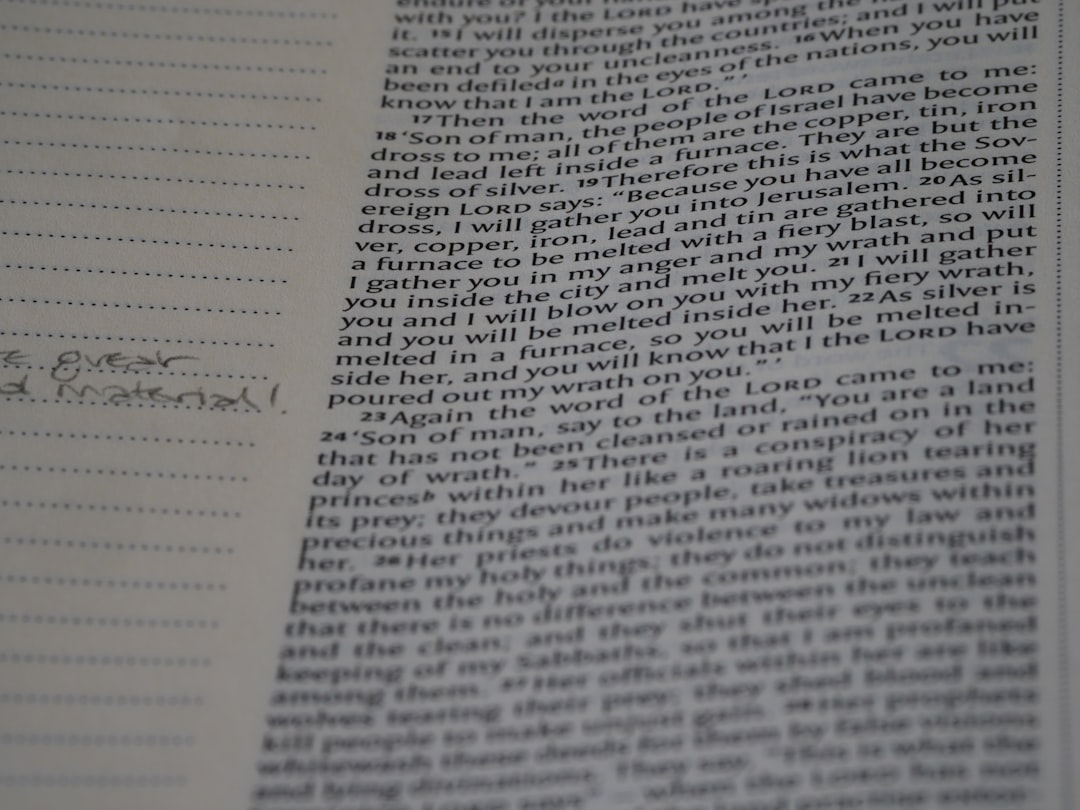 with you? I the LORD have
it. 15 I will disperse you among the
scatter you through the countries; and I will put
an end to your uncleanness. 16 When you have
been defiledᵃ in the eyes of the nations, you will
know that I am the LORD.” ’
17 Then the word of the LORD came to me:
18 ‘Son of man, the people of Israel have become
dross to me; all of them are the copper, tin, iron
and lead left inside a furnace. They are but the
dross of silver. 19 Therefore this is what the Sov-
ereign LORD says: “Because you have all become
dross, I will gather you into Jerusalem. 20 As sil-
ver, copper, iron, lead and tin are gathered into
a furnace to be melted with a fiery blast, so will
I gather you in my anger and my wrath and put
you inside the city and melt you. 21 I will gather
you and I will blow on you with my fiery wrath,
and you will be melted inside her. 22 As silver is
melted in a furnace, so you will be melted in-
side her, and you will know that I the LORD have
poured out my wrath on you.” ’
23 Again the word of the LORD came to me:
24 ‘Son of man, say to the land, “You are a land
that has not been cleansed or rained on in the
day of wrath.” 25 There is a conspiracy of her
princesᵇ within her like a roaring lion tearing
its prey; they devour people, take treasures and
precious things and make many widows within
her. 26 Her priests do violence to my law and
profane my holy things; they do not distinguish
between the holy and the common; they teach
that there is no difference between the unclean
and the clean; and they shut their eyes to the
keeping of my Sabbaths, so that I am profaned
among them. 27 Her officials within her are like
wolves tearing their prey; they shed blood and
kill people to make unjust gain. 28 Her prophets
whitewash these deeds for them by false visions
and lying divinations. They say, “This is what the
material!